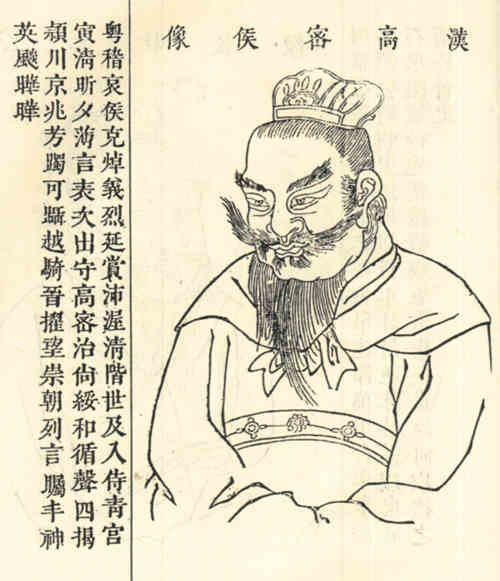 漢高密侯像
粵稽哀侯克焯義烈延賞沛渥清階世及入侍青宮
寅清昕夕溥言表次出守高密治尙綏和循聲四揭
潁川京兆芳躅可躡越騎晉擢望崇朝列言矚丰神
英颷曄曄